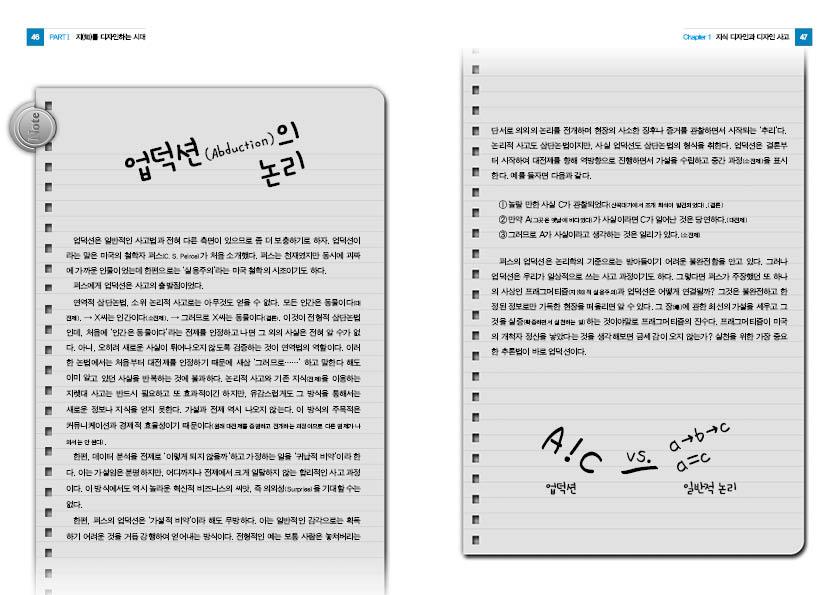 46 PART I 지(知)를 디자인하는 시대
Note
업덕션(Abduction)의
논리
업덕션은 일반적인 사고법과 전혀 다른 측면이 있으므로 좀 더 보충하기로 하자. 업덕션이
라는 말은 미국의 철학자 퍼스(C. S. Peirce)가 처음 소개했다. 퍼스는 천재였지만 동시에 괴짜
에 가까운 인물이었는데 한편으로는 '실용주의'라는 미국 철학의 시조이기도 하다.
퍼스에게 업덕션은 사고의 출발점이었다.
연역적 삼단논법, 소위 논리적 사고로는 아무것도 얻을 수 없다. 모든 인간은 동물이다(대
전제). → X씨는 인간이다(소전제). → 그러므로 X씨는 동물이다(결론). 이것이 전형적 삼단논법
인데, 처음에 '인간은 동물이다'라는 전제를 인정하고 나면 그 외의 사실은 전혀 알 수가 없
다. 아니, 오히려 새로운 사실이 튀어나오지 않도록 검증하는 것이 연역법의 역할이다. 이러
한 논법에서는 처음부터 대전제를 인정하기 때문에 새삼 '그러므로……' 하고 말한다 해도
이미 알고 있던 사실을 반복하는 것에 불과하다. 논리적 사고와 기존 지식(전제)을 이용하는
지렛대 사고는 반드시 필요하고 또 효과적이긴 하지만, 유감스럽게도 그 방식을 통해서는
새로운 정보나 지식을 얻지 못한다. 가설과 전제 역시 나오지 않는다. 이 방식의 주목적은
커뮤니케이션과 경제적 효율성이기 때문이다(원래 대전제를 증명하고 전개하는 과정이므로 다른 문제가 나
와서는 안 된다).
한편, 데이터 분석을 전제로 '이렇게 되지 않을까'하고 가정하는 일을 '귀납적 비약'이라 한
다. 이는 가설임은 분명하지만, 어디까지나 전제에서 크게 일탈하지 않는 합리적인 사고 과정
이다. 이 방식에서도 역시 놀라운 혁신적 비즈니스의 씨앗, 즉 의외성(Surprise)을 기대할 수는
없다.
한편, 퍼스의 업덕션은 '가설적 비약'이라 해도 무방하다. 이는 일반적인 감각으로는 획득
하기 어려운 것을 거듭 강행하여 얻어내는 방식이다. 전형적인 예는 보통 사람은 놓쳐버리는
Chapter 1 지식 디자인과 디자인 사고 47
단서로 의외의 논리를 전개하며 현장의 사소한 징후나 증거를 관찰하면서 시작되는 '추리'다.
논리적 사고도 삼단논법이지만, 사실 업덕션도 삼단논법의 형식을 취한다. 업덕션은 결론부
터 시작하여 대전제를 향해 역방향으로 진행하면서 가설을 수립하고 중간 과정(소전제)을 표시
한다. 예를 들자면 다음과 같다.
① 놀랄 만한 사실 C가 관찰되었다(산꼭대기에서 조개 화석이 발견되었다). (결론)
② 만약 A(그곳은 옛날에 바다였다)가 사실이라면 C가 일어난 것은 당연하다.(대전제)
③ 그러므로 A가 사실이라고 생각하는 것은 일리가 있다.(소전제)
퍼스의 업덕션은 논리학의 기준으로는 받아들이기 어려운 불완전함을 안고 있다. 그러나
업덕션은 우리가 일상적으로 쓰는 사고 과정이기도 하다. 그렇다면 퍼스가 주장했던 또 하나
의 사상인 프래그머티즘(지극히 실용주의)과 업덕션은 어떻게 연결될까? 그것은 불완전하고 한
정된 정보로만 가득한 현장을 떠올리면 알 수 있다. 그 장(場)에 관한 최선의 가설을 세우고 그
것을 실증(확증하면서 실천하는 일)하는 것이야말로 프래그머티즘의 진수다. 프래그머티즘이 미국
의 개척자 정신을 낳았다는 것을 생각해보면 금세 감이 오지 않는가? 실천을 위한 가장 중요
한 추론법이 바로 업덕션이다.
A!C vs. a→b→c
a=c
업덕션 일반적 논리